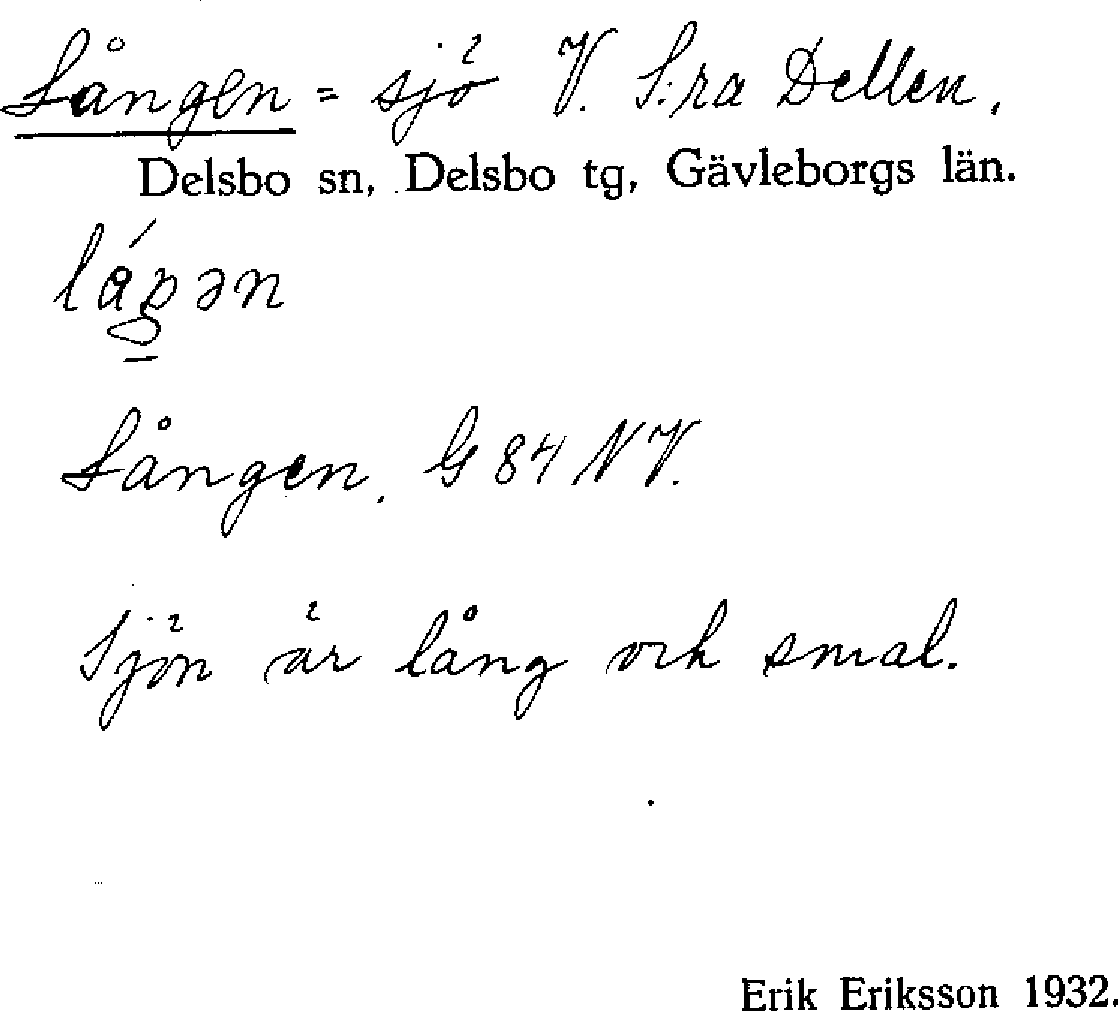 Lången = sjö V. S:ra Dellen.
Delsbo sn, Delsbo tg, Gävleborgs län.
Lången. G 84 NV.
Sjön är lång och smal.
Erik Eriksson 1932.